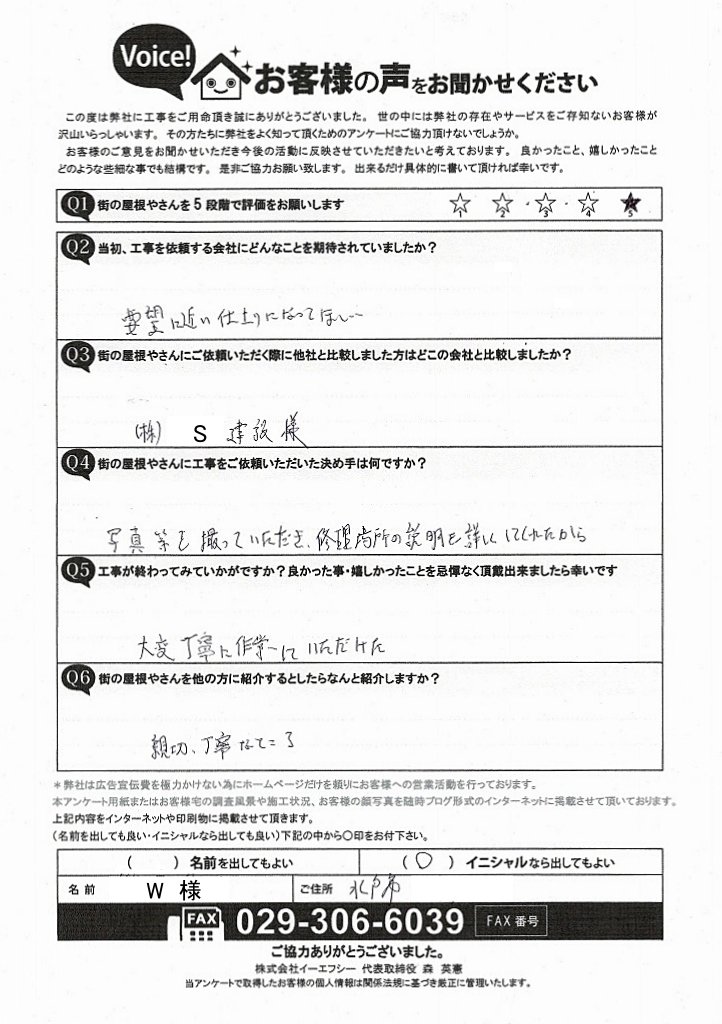 Voice!
お客様の声をお聞かせください
この度は弊社に工事をご用命頂き誠にありがとうございました。 世の中には弊社の存在やサービスをご存知ないお客様が
沢山いらっしゃいます。 その方たちに弊社をよく知って頂くためのアンケートにご協力頂けないでしょうか。
お客様のご意見をお聞かせいただき今後の活動に反映させていただきたいと考えております。 良かったこと、嬉しかったこと
どのような些細な事でも結構です。 是非ご協力お願い致します。 出来るだけ具体的に書いて頂ければ幸いです。
Q1 街の屋根やさんを5段階で評価をお願いします ☆1 ☆2 ・ ☆3 ・ ☆4 ★5
Q2 当初、工事を依頼する会社にどんなことを期待されていましたか?
要望に近い仕上りになってほしい
Q3 街の屋根やさんにご依頼いただく際に他社と比較しました方はどこの会社と比較しましたか?
(株) S 建設様
Q4 街の屋根やさんに工事をご依頼いただいた決め手は何ですか?
写真等を撮っていただき、修理箇所の説明を詳しくしてくれたから
Q5 工事が終わってみていかがですか?良かった事・嬉しかったことを忌憚なく頂戴出来ましたら幸いです
大変丁寧に作業していただけた
Q6 街の屋根やさんを他の方に紹介するとしたらなんと紹介しますか?
親切、丁寧なところ
*弊社は広告宣伝費を極力かけない為にホームページだけを頼りにお客様への営業活動を行っております。
本アンケート用紙またはお客様宅の調査風景や施工状況、お客様の顔写真を随時ブログ形式のインターネットに掲載させて頂いております。
上記内容をインターネットや印刷物に掲載させて頂きます。
(名前を出しても良い・イニシャルなら出しても良い)下記の中から〇印をお付下さい。
( ) 名前を出してもよい (〇) イニシャルなら出してもよい
名前 W 様 ご住所 水戸市
FAX 029-306-6039 FAX 番号
ご協力ありがとうございました。
株式会社イーエフシー 代表取締役 森 英憲
当アンケートで取得したお客様の個人情報は関係法規に基づき厳正に管理いたします。